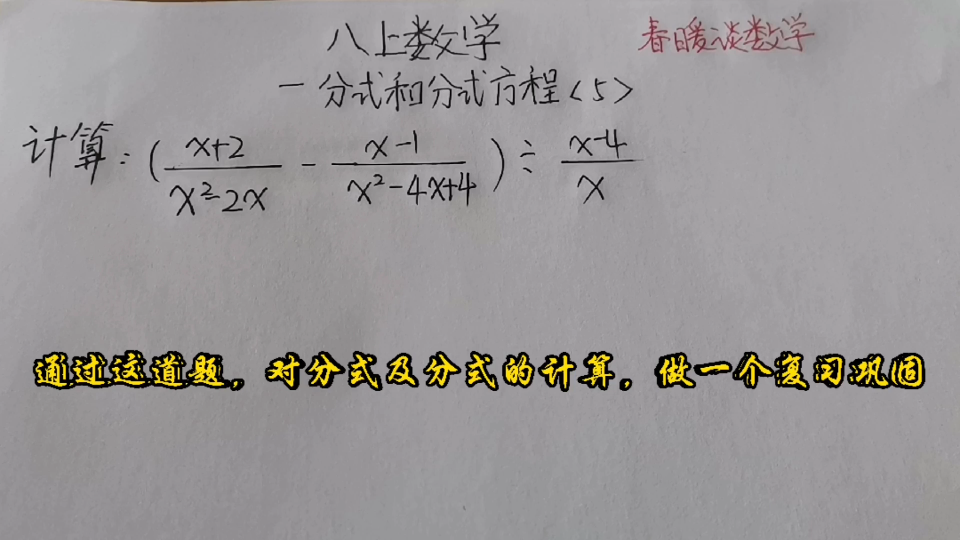 八上数学
春暖谈数学
—分式和分式方程<5>
计算:(\frac{x+2}{x²-2x} - \frac{x-1}{x²-4x+4}) ÷ \frac{x-4}{x}
通过这道题，对分式及分式的计算，做一个复习巩固